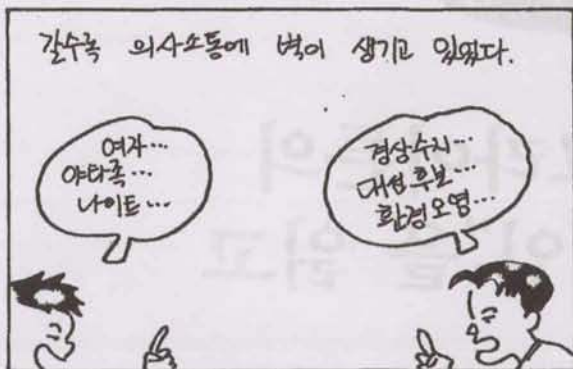 갈수록 의사소통에 벽이 생기고 있었다.
여자…
야타족…
나이트…
경상수지…
대선 후보…
환경오염…